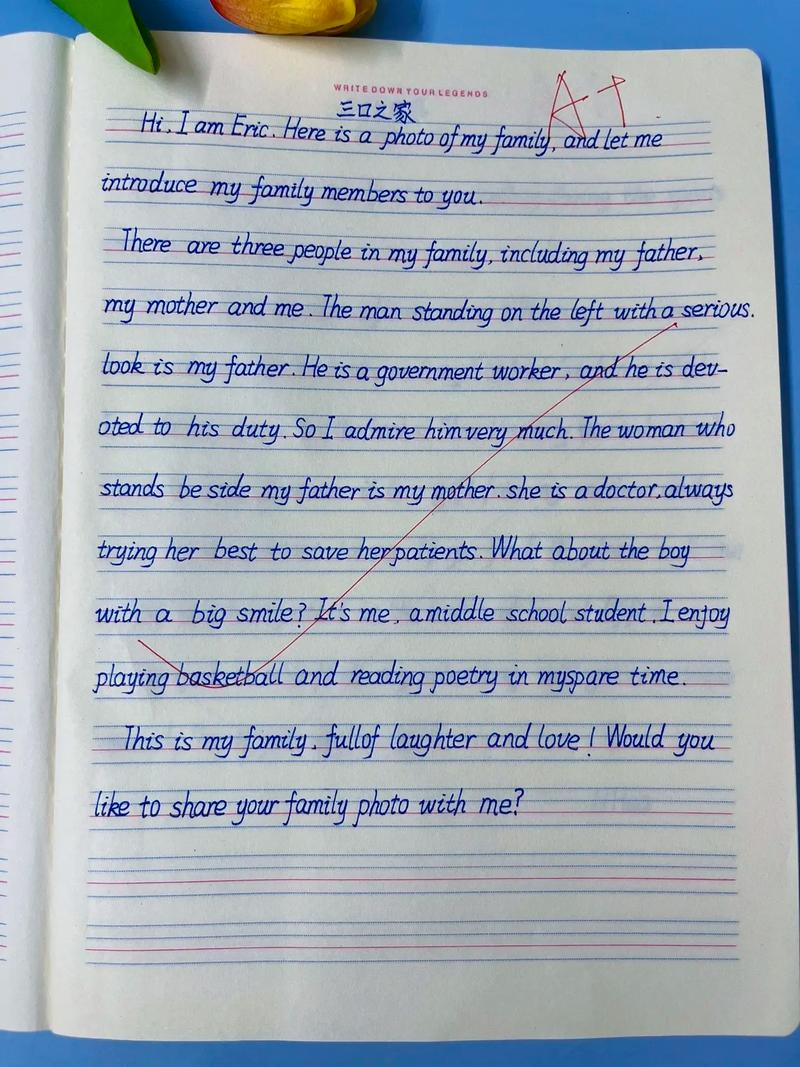 WRITE DOWN YOUR LEGENDS
三口之家
A+
Hi, I am Eric. Here is a photo of my family, and let me
introduce my family members to you.
There are three people in my family, including my father,
my mother and me. The man standing on the left with a serious.
look is my father. He is a government worker, and he is dev-
oted to his duty. So I admire him very much. The woman who
stands beside my father is my mother. she is a doctor, always
trying her best to save her patients. What about the boy
with a big smile? It's me, a middle school student. I enjoy
playing basketball and reading poetry in my spare time.
This is my family, full of laughter and love! Would you
like to share your family photo with me?